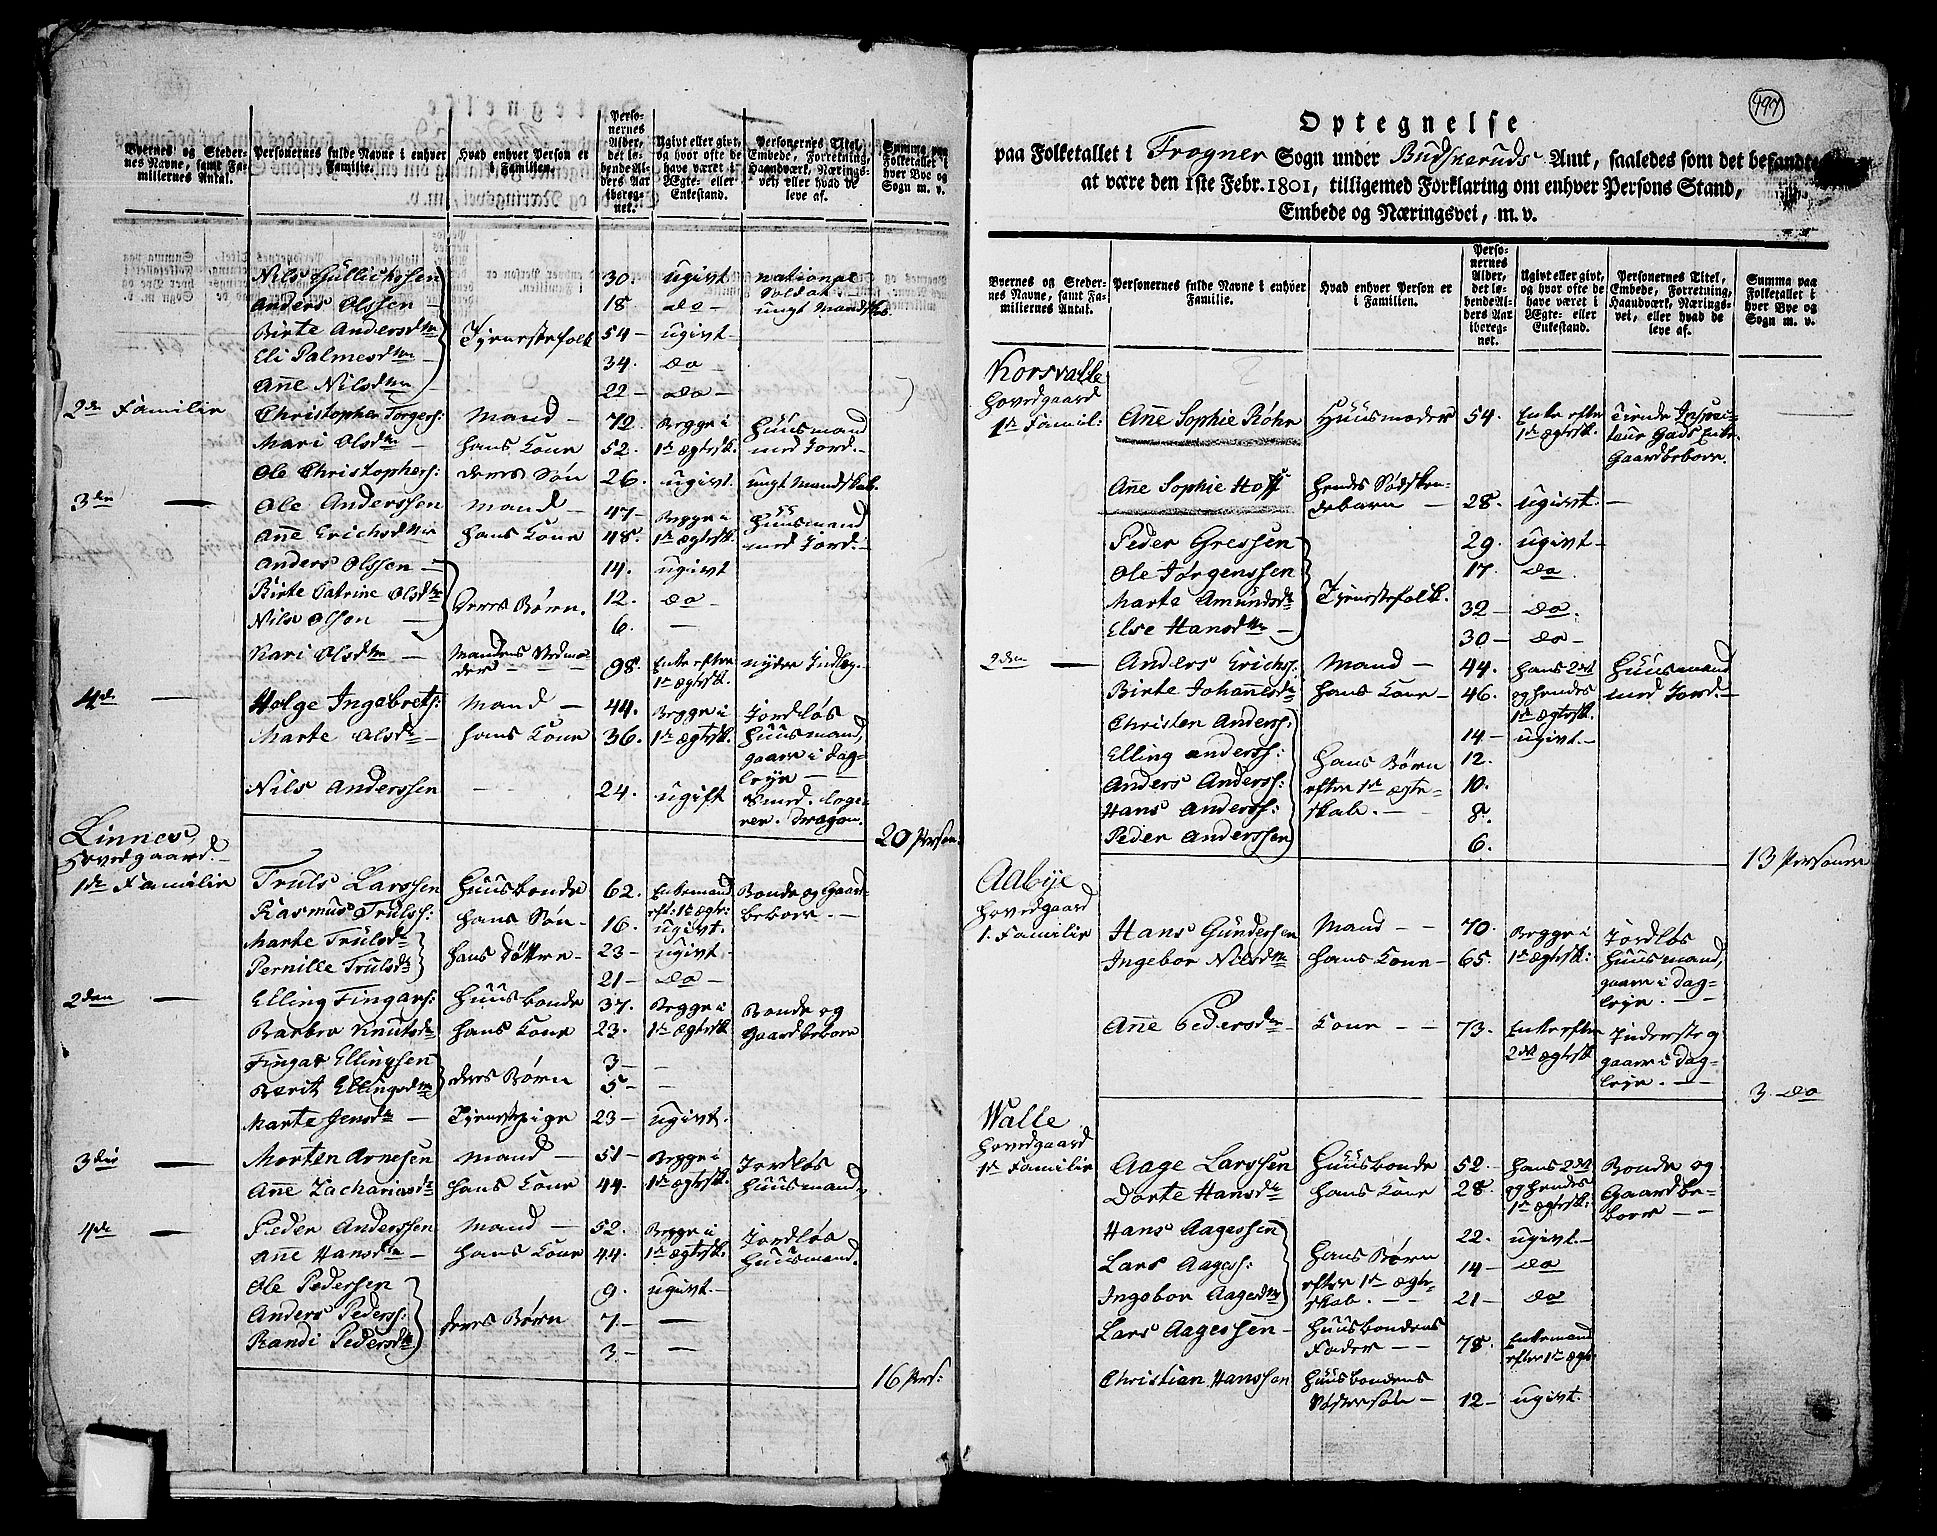 Byernes og Steder-
nes Navne, samt Fa-
miliernes Antal.
Personernes fulde Navne i enhver
Familie.
Hvad enhver Person er
i Familien.
Perso-
nernes
Alder,
det lø-
bende Al-
ders Aar
ibereg-
net.
Ugivt eller givt,
og hvor ofte de
have været i
Ægte- eller
Enkestand.
Personernes Titel,
Embede, Forretning,
Haandværk, Nærings-
vei, eller hvad de
leve af.
Summa paa
Folketallet i
hver Bye og
Sogn m. v.
Nils Gullichssen 30. ugivt national
Soldat.
Anders Olssen — 18 do — ungt Mandskab
Birte Andersdtter Tjenestefolk 54 — ugivt —
Eli Palmesdtter — 34. do —
Anne Nilsdtter 22 — do —
2den Familie Christopher Torgers: Mand — 72. Begge i Huusmand
Mari Olsdtter — hans Kone 52. 1ste Ægtesk. med Jord. —
Ole Christophers: deres Søn 26. ugivt. ungt Mandskab.
3die — Ole Anderssen Mand — 47 — Begge i Huusmand
Anne Erichsdtter hans Kone 48. 1ste Ægtesk. med Jord. —
Anders Olssen — 14. ugivt
Birte Catrine Olsdtter deres Børn. 12. do —
Nils Olssen — 6. —
Kari Olsdtter — Mandens Vedmo-
der 98. Enke efter
1ste Ægtesk. nyder Indlæg.
4de — Holge Ingebrets: Mand — 44. Begge i Jordløs
Marte Olsdtter — hans Kone 36. 1ste Ægtesk. Huusmand,
gaaer i Dag-
leje —
Nils Anderssen — 24. ugift
Dragon.
20 Person.
Linnes,
Hovedgaard. —
1ste Familie Truls Larssen Huusbonde 62. Enkemand
eft: 1ste Ægte: Bonde og Gaard-
beboer. —
Rasmus Truls: hans Søn — 16. ugivt.
Marte Trulsdtter hans Døttre — 23 — ugivt —
Pernille Trulsdtter 21 — do —
2den — Elling Fingars: Huusbonde 37. Begge i Bonde og
Barbro Knutsdtter hans Kone 23. 1ste Ægtesk. Gaardbeboer
Fingar Ellingsen 3 — —
Berit Ellingsdtter deres Børn 5 — —
Marte Jensdtter — Tjenestepige 23 — ugivt.
3die — Morten Arnesen Mand — 51 — Begge i Jordløs
Anne Zachariasdtter hans Kone 44. 1ste Ægtesk. Huusmand.
4de — Peder Anderssen Mand — 52. Begge i Jordløs
Anne Hansdtter — hans Kone 44. 1ste Ægtesk. Huusmand.
Ole Pedersen 9. ugivt. —
Anders Peders: deres Børn 7. — —
Randi Pedersdtter 3. — —
16 Pers:
497
Optegnelse
paa Folketallet i Frogner Sogn under Budskeruds Amt, saaledes som det befandtes
at være den 1ste Febr. 1801, tilligemed Forklaring om enhver Persons Stand,
Embede og Næringsvei, m. v.
Byernes og Steder-
nes Navne, samt Fa-
miliernes Antal.
Personernes fulde Navne i enhver
Familie.
Hvad enhver Person er
i Familien.
Perso-
nernes
Alder,
det lø-
bende Al-
ders Aar
ibereg-
net.
Ugivt eller givt,
og hvor ofte de
have været i
Ægte- eller
Enkestand.
Personernes Titel,
Embede, Forretning,
Haandværk, Nærings-
vei, eller hvad de
leve af.
Summa paa
Folketallet i
hver Bye og
Sogn m. v.
Korsvalle
Hovedgaard
1ste Famil: Anne Sophie Røhr Huusmoder 54. Enke efter
1ste Ægtesk. Tiende Inspec-
teur Gads Enke
Gaardbeboer.
Anne Sophie Hoff hendes Sødsken-
debarn — 28. ugivt. —
Peder Gressen 29. ugivt —
Ole Jørgenssen 17. do.
Marte Amundsdtter Tjenestefolk. 32 — do.
Else Hansdtter — 30 — do —
2den — Anders Erichs: Mand — 44. hans 2det Huusmand
Birte Johannesdtter hans Kone — 46. og hendes
1ste Ægtesk. med Jord. —
Christen Anders: 14 — ugivt. —
Elling Anderss: hans Børn 12.
Anders Anderss: efter 1ste Ægte- 10.
Hans Anderss: skab. — 8.
Peder Anderssen 6.
13 Personer
Aabye
Hovedgaard
1. Familie Hans Gunderssen Mand — — 70. Begge i Jordløs
Ingebor Nilsdtter hans Kone — 65. 1ste Ægtesk: Huusmand,
gaaer i Dag-
leje. —
Anne Pedersdtter — Kone — — 73. Enke efter
2det Ægtesk. Inderste og
gaaer i Dag-
leje. —
3. do
Walle
Hovedgaard
1ste Familie Aage Larssen Huusbonde 52. hans 2det Bonde og
Dorte Hansdtter hans Kone 28. og hendes
1ste Ægtesk: Gaardbe-
boer — —
Hans Aagessen 22. ugivt. —
Lars Aagess: hans Børn
efter 1ste Ægte- 14 — do
Ingebor Aagesdtter skab. — — 21 — do
Lars Aagessen — Huusbondens
Fader — — 78. Enkemand
efter 1ste Ægte:
Christian Hanssen Huusbondens
Søstersøn — 12 — ugivt.